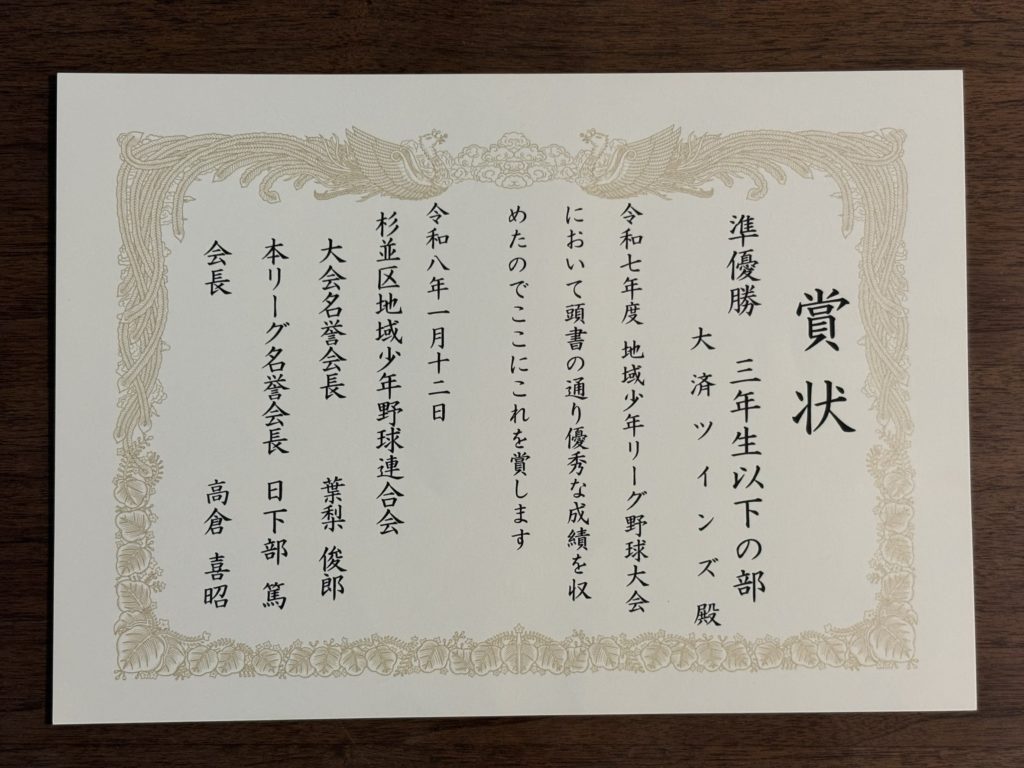 賞状
準優勝 三年生以下の部
大済ツインズ殿
令和七年度 地域少年リーグ野球大会
において頭書の通り優秀な成績を収
めたのでここにこれを賞します
令和八年一月十二日
杉並区地域少年野球連合会
大会名誉会長 葉梨 俊郎
本リーグ名誉会長 日下部 篤
会長 高倉 喜昭